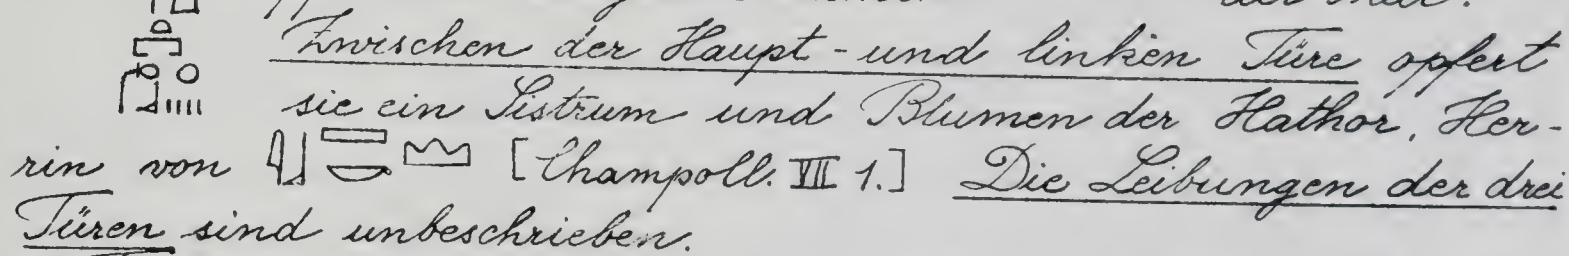 Zwischen der Haupt- und linken Türe opfert
sie ein Sistrum und Blumen der Hathor, Her-
rin von [Champoll. VII 1.] Die Leibungen der drei
Türen sind unbeschrieben.